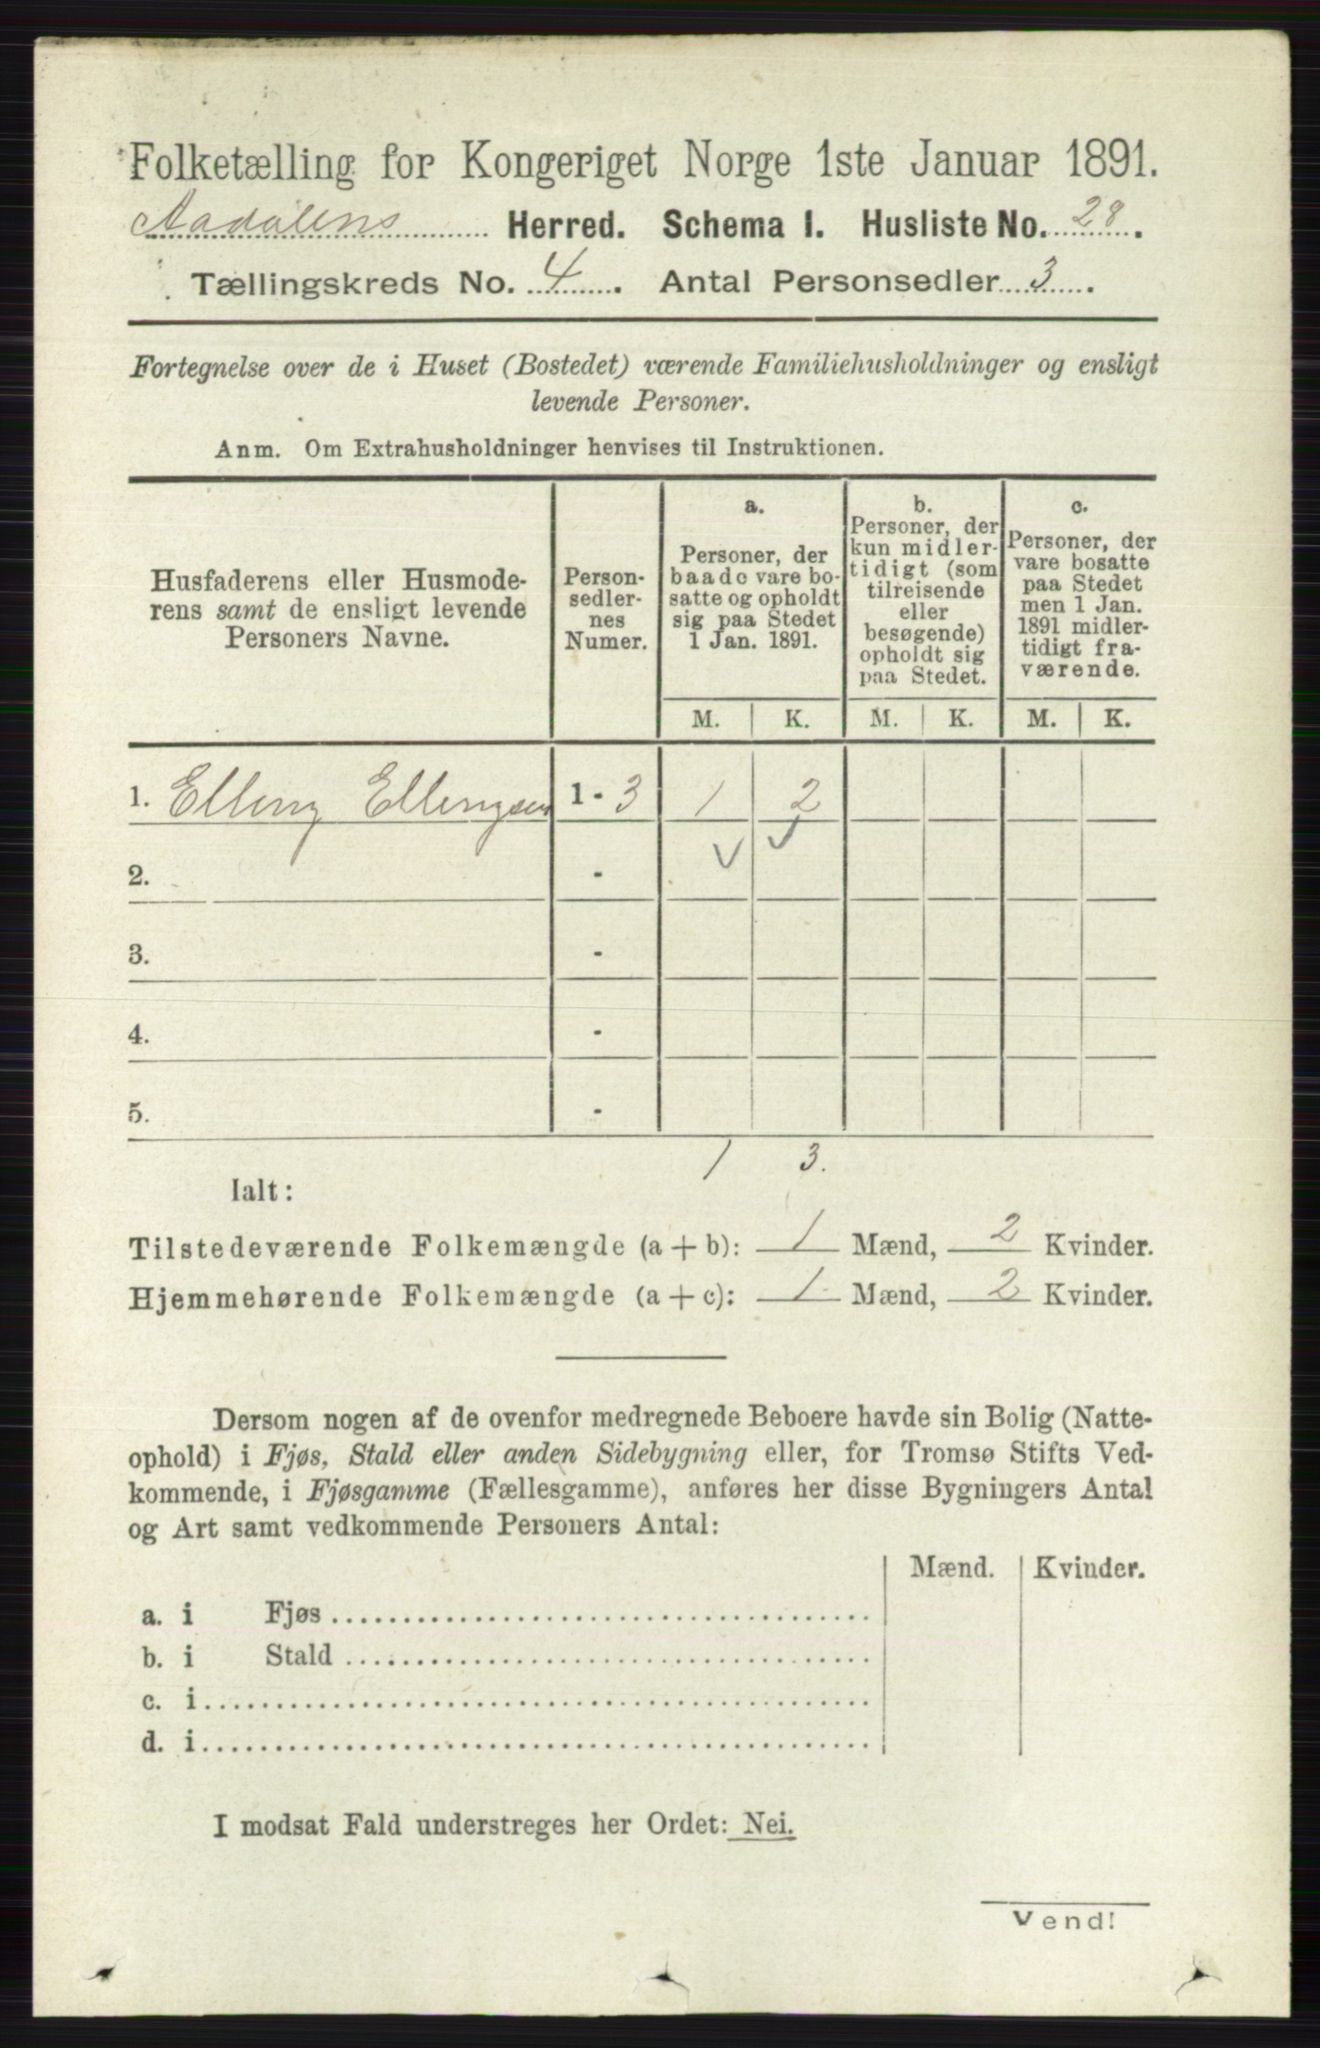 Folketælling for Kongeriget Norge 1ste Januar 1891.
Aadalens Herred. Schema I. Husliste No. 28.
Tællingskreds No. 4. Antal Personsedler 3.
Fortegnelse over de i Huset (Bostedet) værende Familiehusholdninger og ensligt
levende Personer.
Anm. Om Extrahusholdninger henvises til Instruktionen.
Husfaderens eller Husmode-
rens samt de ensligt levende
Personers Navne.
Person-
sedler-
nes
Numer.
a.
Personer, der
baade vare bo-
satte og opholdt
sig paa Stedet
1 Jan. 1891.
b.
Personer, der
kun midler-
tidigt (som
tilreisende
eller
besøgende)
opholdt sig
paa Stedet.
c.
Personer, der
vare bosatte
paa Stedet
men 1 Jan.
1891 midler-
tidigt fra-
værende.
M. K. M. K. M. K.
1. Elling Ellingsen 1 - 3 1 2
2. -
3. -
4. -
5. -
1 3.
Ialt:
Tilstedeværende Folkemængde (a + b): 1 Mænd, 2 Kvinder.
Hjemmehørende Folkemængde (a + c): 1 Mænd, 2 Kvinder.
Dersom nogen af de ovenfor medregnede Beboere havde sin Bolig (Natte-
ophold) i Fjøs, Stald eller anden Sidebygning eller, for Tromsø Stifts Ved-
kommende, i Fjøsgamme (Fællesgamme), anføres her disse Bygningers Antal
og Art samt vedkommende Personers Antal:
Mænd. Kvinder.
a. i Fjøs
b. i Stald
c. i
d. i
I modsat Fald understreges her Ordet: Nei.
Vend!